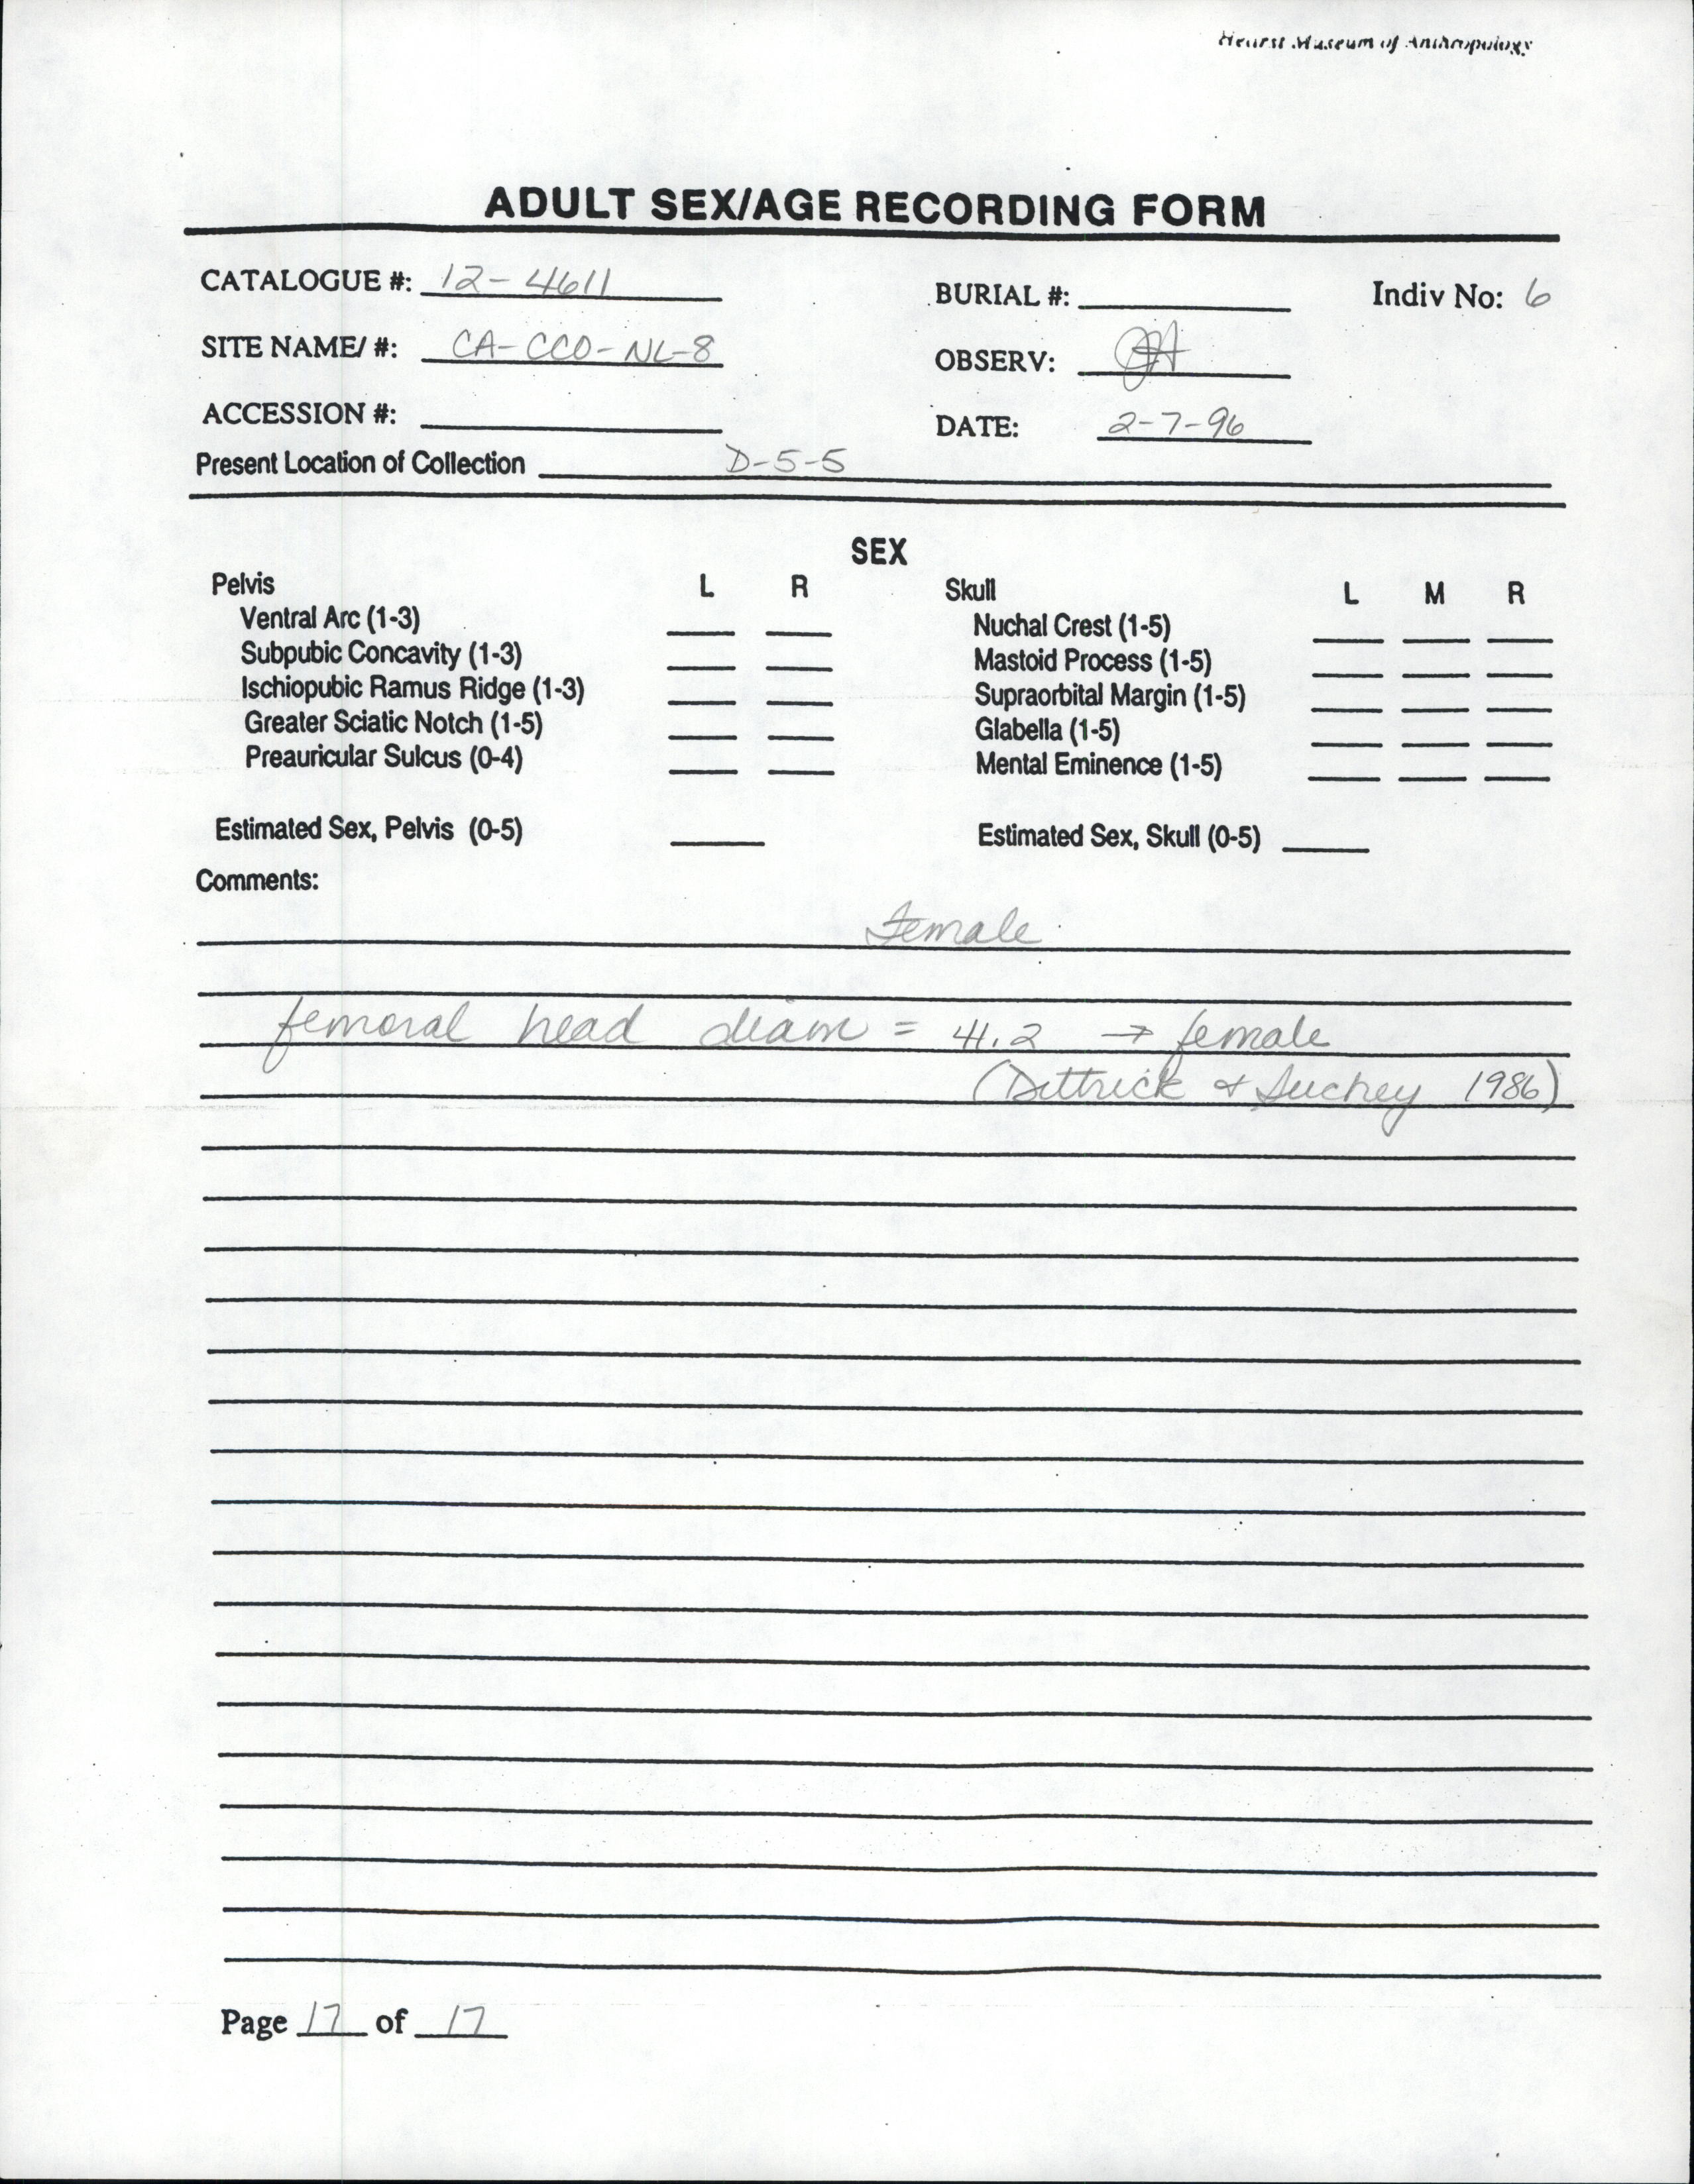 Hearst Museum of Anthropology
ADULT SEX/AGE RECORDING FORM
CATALOGUE #: 12-4611
BURIAL #:
Indiv No: 6
SITE NAME/ #: CA-CCO-NL-8
OBSERV:
ACCESSION #:
DATE: 2-7-96
Present Location of Collection D-5-5
SEX
Pelvis L R
Skull L M R
Ventral Arc (1-3)
Nuchal Crest (1-5)
Subpubic Concavity (1-3)
Mastoid Process (1-5)
Ischiopubic Ramus Ridge (1-3)
Supraorbital Margin (1-5)
Greater Sciatic Notch (1-5)
Glabella (1-5)
Preauricular Sulcus (0-4)
Mental Eminence (1-5)
Estimated Sex, Pelvis (0-5)
Estimated Sex, Skull (0-5)
Comments:
Female
femoral head diam = 41.2 → female
(Dittrick & Suchey 1986)
Page 17 of 17